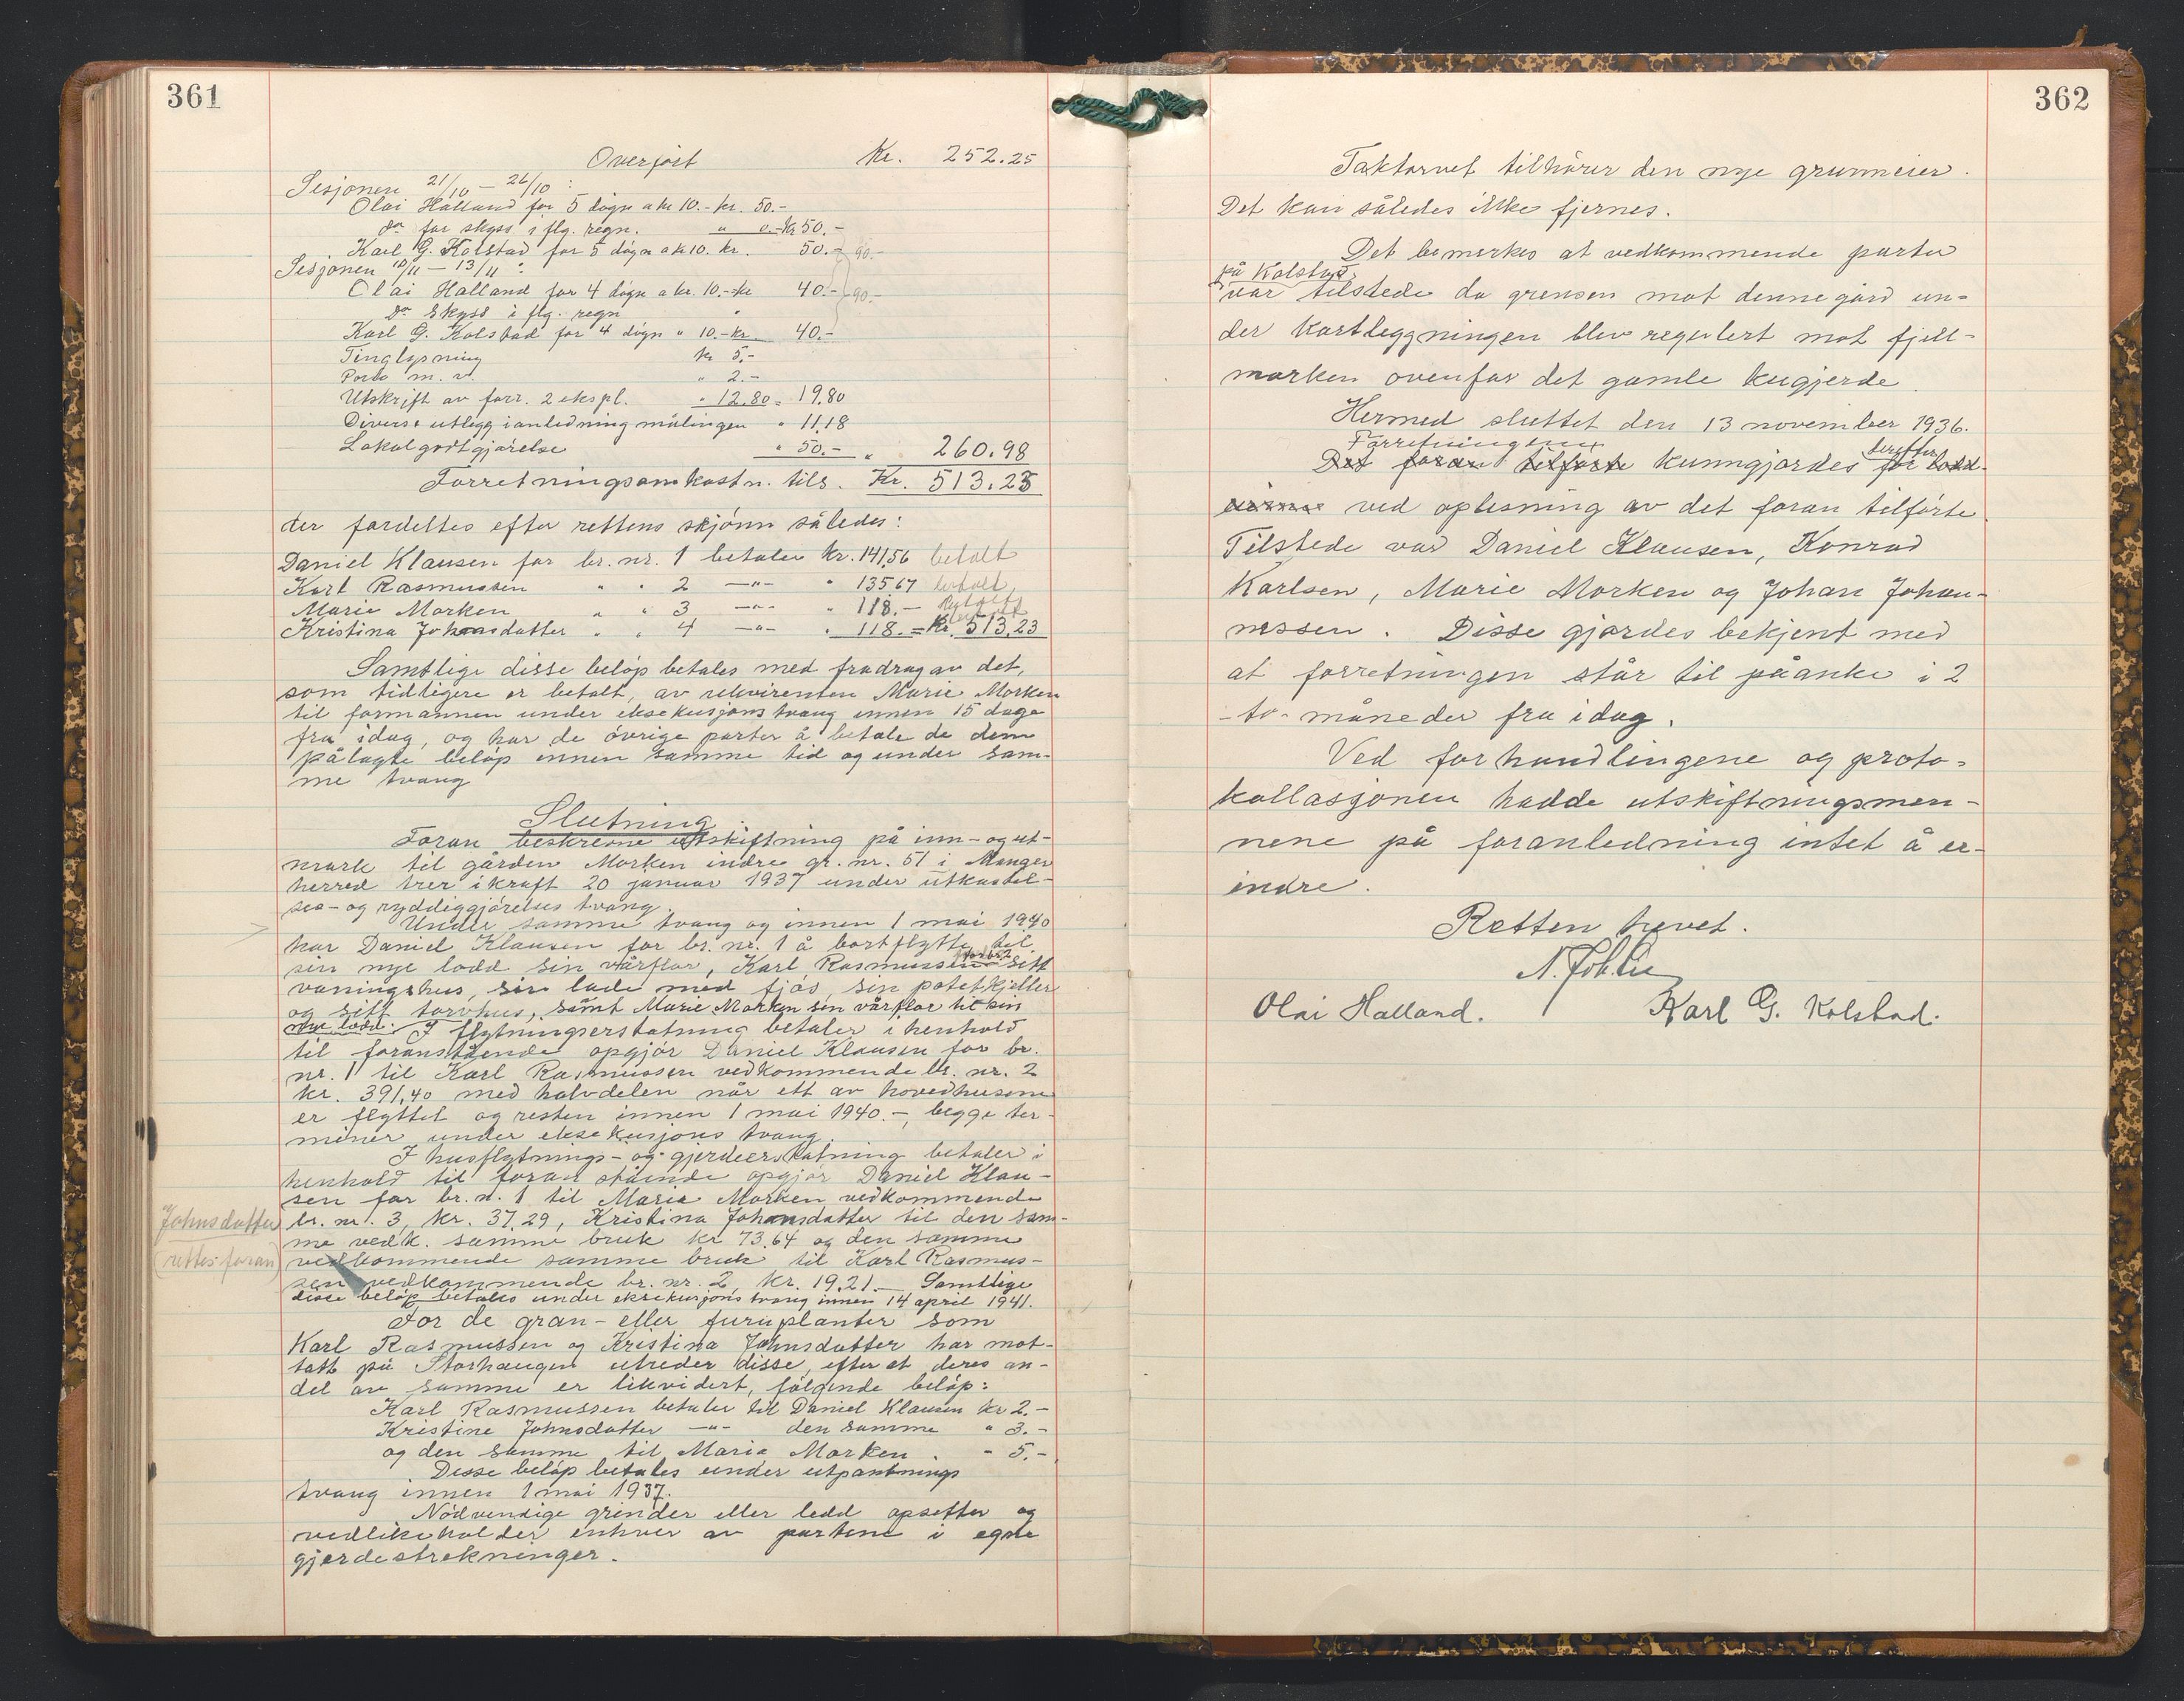 361
Overført Kr. 252.25
Sesjonen 21/10 – 26/10 :
Olai Halland for 5 døgn a kr 10.- kr. 50.-
do for skyss i flg. regn. " 0.- kr 50.-
Karl G. Kolstad for 5 døgn a kr 10. kr. 50.- 90.-
Sesjonen 10/11 – 13/11 :
Olai Halland for 4 døgn a kr. 10.- kr 40.- 90.-
Do skyss i flg. regn "
Karl G. Kolstad for 4 døgn " 10.- kr 40.-
Tinglysning kr 5.-
Porto m. v. " 2.-
Utskrift av forr. 2 ekspl. " 12.80 = 19.80
Diverse utlegg i anledning målingen " 11.18
Lokalgodtgjørelse " 50.- " 260.98
Forretningsomkostn. tils. Kr. 513.23
der fordeltes efter rettens skjønn således:
Daniel Klausen for br. nr. 1 betaler kr. 141,56 betalt
Karl Rasmussen " " 2 —"— " 135 67 betalt
Marie Morken " " 3 —"— " 118.- betalt
Kristina Johnsdatter " " 4 —"— " 118. = Kr. 513,23
Samtlige disse beløp betales med fradrag av det,
som tidligere er betalt, av rekvirenten Marie Morken
til formannen under eksekusjons tvang innen 15 dage
fra idag, og har de øvrige parter å betale de dem
pålagte beløp innen samme tid og under sam-
me tvang
Slutning:
Foran beskrevne utskiftning på inn- og ut-
mark til gården Morken indre gr. nr. 51 i Manger
herred trer i kraft 20 januar 1937 under utkastel-
ses- og ryddiggjørelses tvang.
Under samme tvang og innen 1 mai 1940
har Daniel Klausen for br. nr. 1 å bortflytte til
sin nye lodd sin vårflor, Karl Rasmussen for br 2 sitt
våningshus, sin lade med fjøs, sin potetkjeller
og sitt torvhus, samt Marie Morken sin vårflor til sin
nye lodd. I flytningserstatning betaler i henhold
til foranstående opgjør Daniel Klausen for br.
nr. 1 til Karl Rasmussen vedkommende br. nr. 2
kr. 391,40 med halvdelen når ett av hovedhusene
er flyttet og resten innen 1 mai 1940.-, begge ter-
miner under eksekusjons tvang.
I husflytnings- og gjerdeerstatning betaler i
henhold til foran stående opgjør Daniel Klau-
sen for br. n. 1 til Maria Morken vedkommende
Johnsdatter br. nr. 3, kr. 37,29, Kristina Johnsdatter til den sam-
me vedk. samme bruk kr 73.64 og den samme
(rettes foran) vedkommende samme bruk til Karl Rasmus-
sen vedkommende br. nr. 2, kr. 19,21. Samtlige
disse beløp betales under eksekusjons tvang innen 14 april 1941.
For de gran- eller furuplanter som
Karl Rasmussen og Kristina Johnsdatter har mot-
tatt på Storhaugen utreder disse, efter at deres an-
del av samme er likvidert, følgende beløp:
Karl Rasmussen betaler til Daniel Klausen kr 2.-
Kristine Johnsdatter —"— den samme " 3.-
og den samme til Maria Morken. " 5.-
Disse beløp betales under utpantnings
tvang innen 1 mai 1937.
Nødvendige grinder eller ledd opsetter og
vedlikeholder enhver av partene i egne
gjerdestrekninger.
362
Taktorvet tilhører den nye grunneier.
Det kan således ikke fjernes.
Det bemerkes at vedkommende parter
på Kolstad
var tilstede da grensen mot denne gård un-
der kartleggningen blev regulert mot fjell-
marken ovenfor det gamle kugjerde.
Hermed sluttet den 13 november 1936.
Forretningen derefter
Det foran tilførte kunngjordes for lodd-
eierne ved oplesning av det foran tilførte.
Tilstede var Daniel Klausen, Konrad
Karlsen, Marie Morken og Johan Johan-
nessen. Disse gjordes bekjent med
at forretningen står til påanke i 2
- to - måneder fra idag.
Ved forhandlingene og proto-
kollasjonen hadde utskiftningsmen-
nene på foranledning intet å er-
indre.
Retten hevet.
Olai Halland. Karl G. Kolstad.